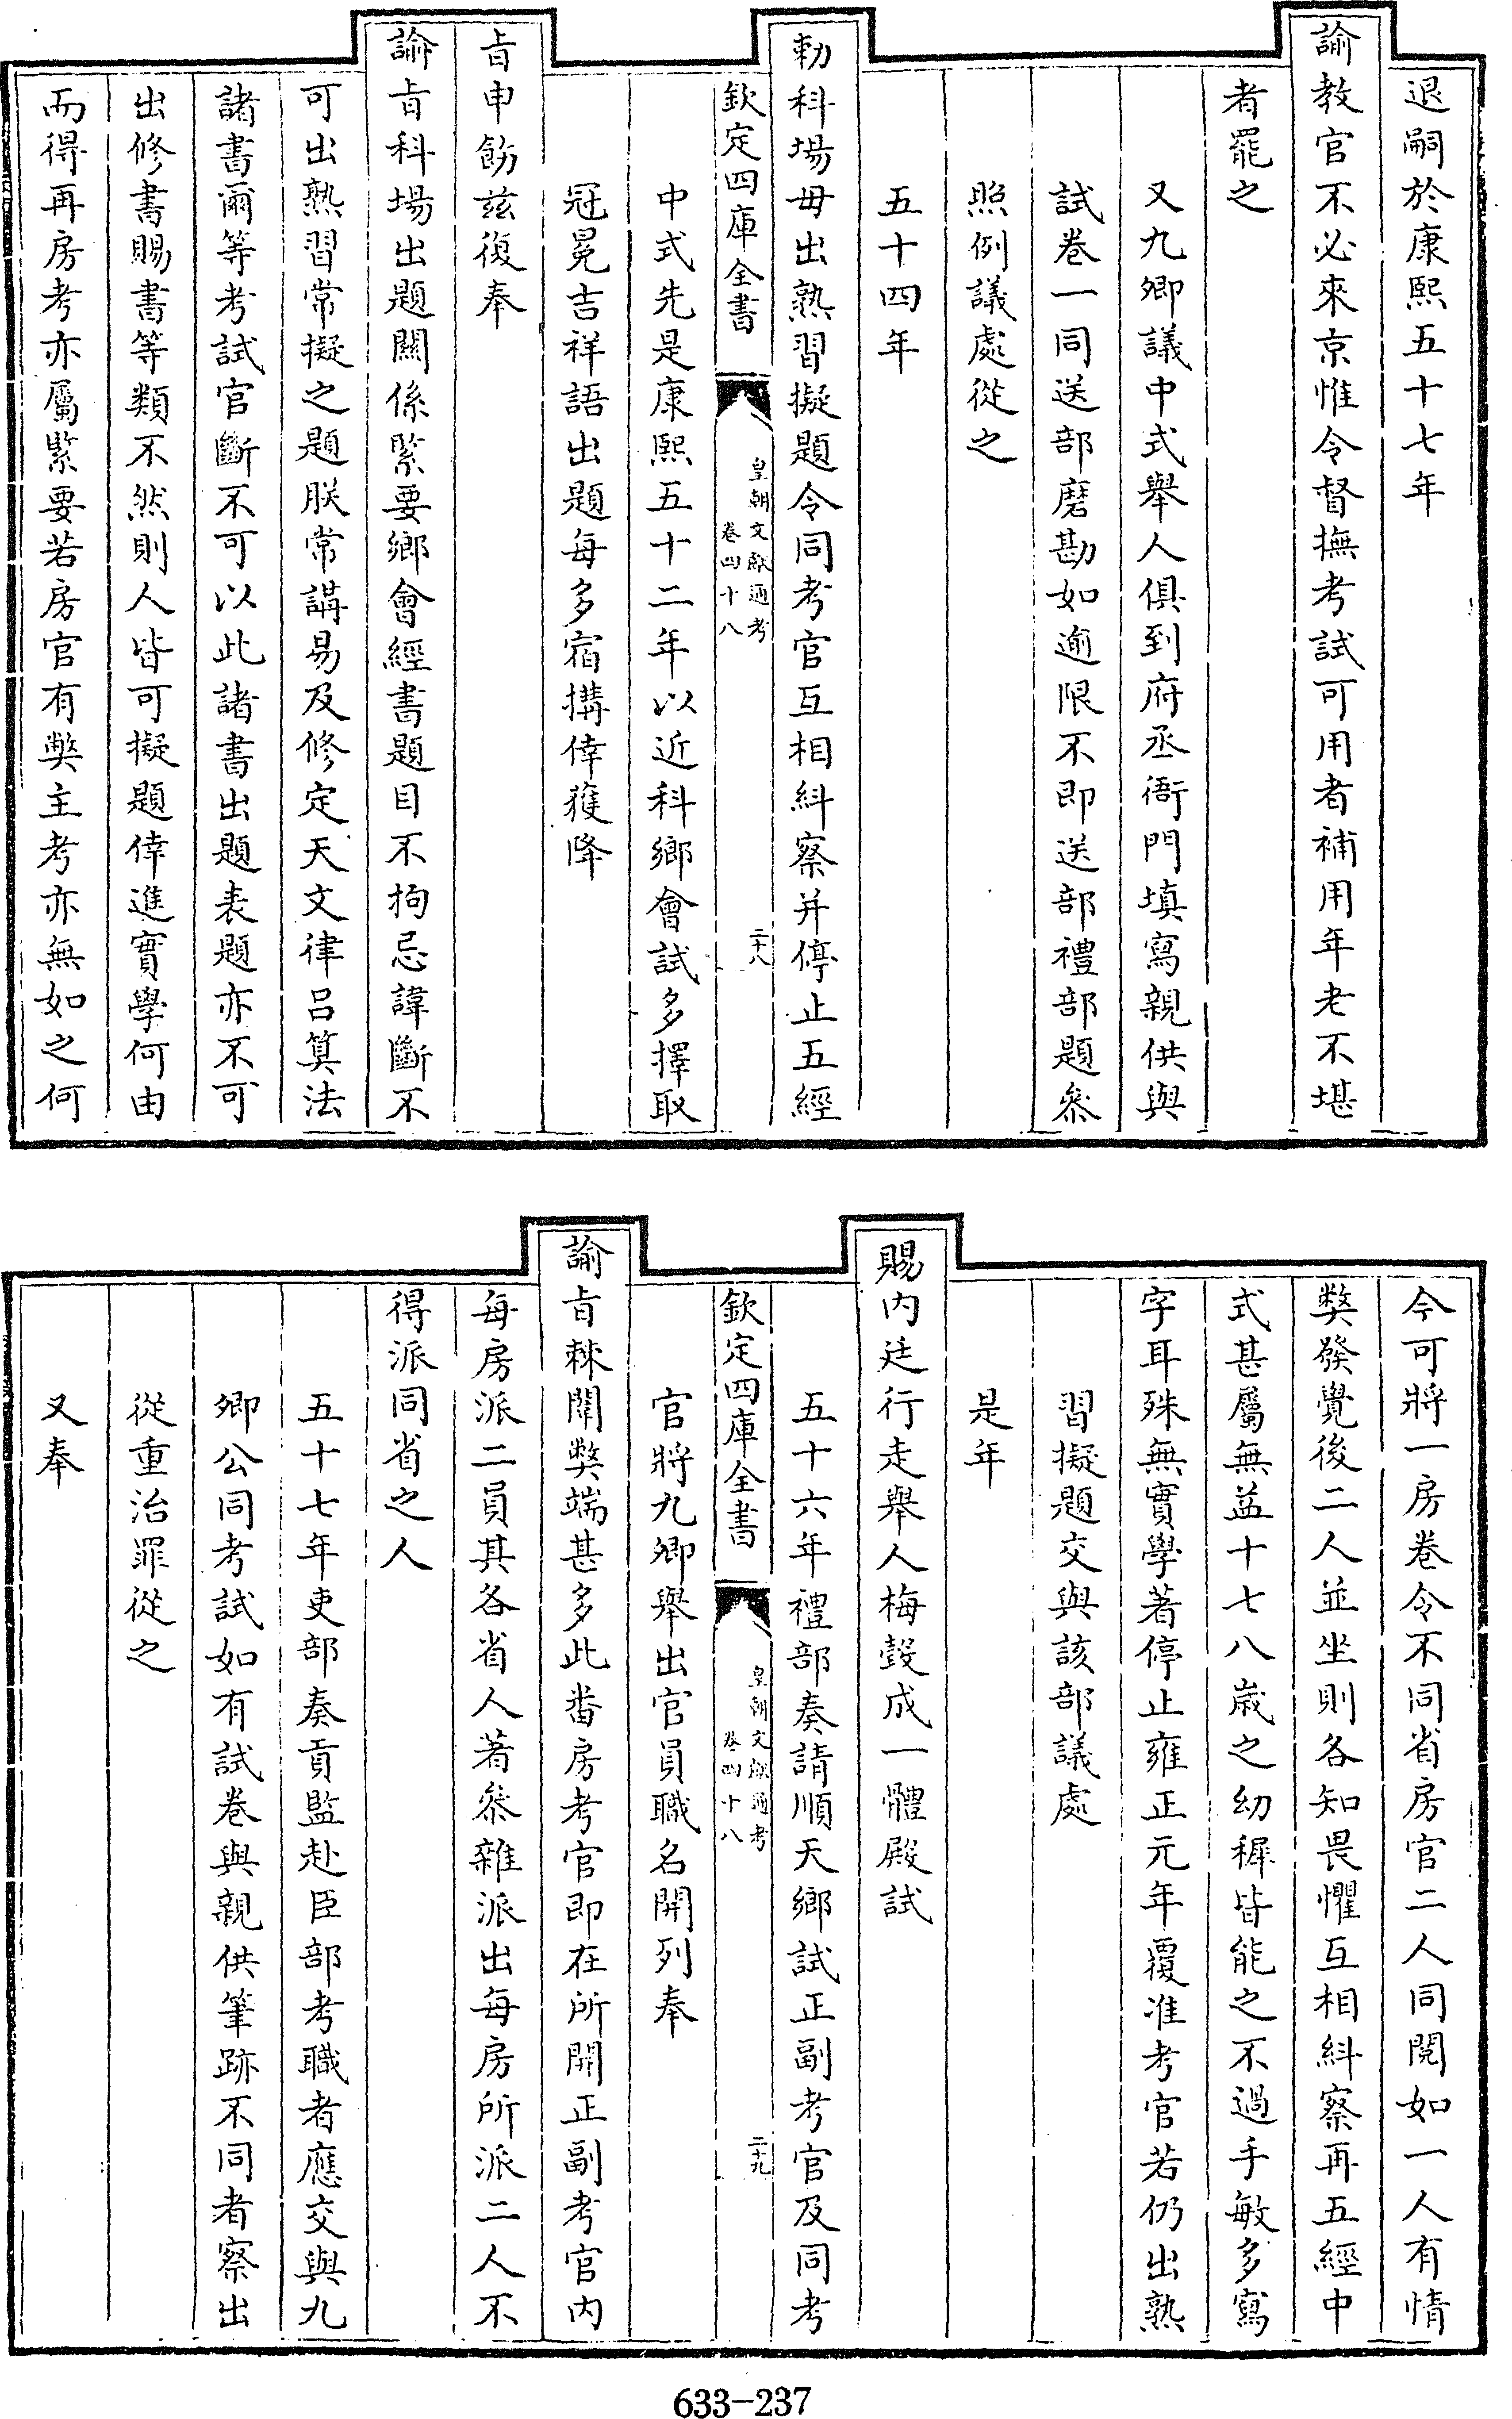 退嗣於康熙五十七年
諭教官不必來京惟令督撫考試可用者補用年老不堪
者罷之
又九卿議中式舉人俱到府丞衙門填寫親供與
試卷一同送部磨勘如逾限不即送部禮部題叅
照例議處從之
五十四年
勅科場毋出熟習擬題令同考官互相糾察并停止五經
欽定四庫全書
皇朝文獻通考
卷四十八
二十八
中式先是康熙五十二年以近科鄉會試多擇取
冠冕吉祥語出題每多宿搆倖獲降
旨申飭兹復奉
諭旨科場出題關係緊要鄉會經書題目不拘忌諱斷不
可出熟習常擬之題朕常講易及修定天文律吕算法
諸書爾等考試官斷不可以此諸書出題表題亦不可
出修書賜書等類不然則人皆可擬題倖進實學何由
而得再房考亦屬緊要若房官有弊主考亦無如之何
今可將一房卷令不同省房官二人同閱如一人有情
弊發覺後二人並坐則各知畏懼互相糾察再五經中
式甚屬無益十七八嵗之幼穉皆能之不過手敏多寫
字耳殊無實學著停止雍正元年覆准考官若仍出熟
習擬題交與該部議處
是年
賜内廷行走舉人梅瑴成一體殿試
五十六年禮部奏請順天鄉試正副考官及同考
欽定四庫全書
皇朝文獻通考
卷四十八
二十九
官將九卿舉出官員職名開列奉
諭旨棘闈弊端甚多此畨房考官即在所開正副考官内
每房派二員其各省人著叅雜派出每房所派二人不
得派同省之人
五十七年吏部奏貢監赴臣部考職者應交與九
卿公同考試如有試卷與親供筆跡不同者察出
從重治罪從之
又奉
633-237